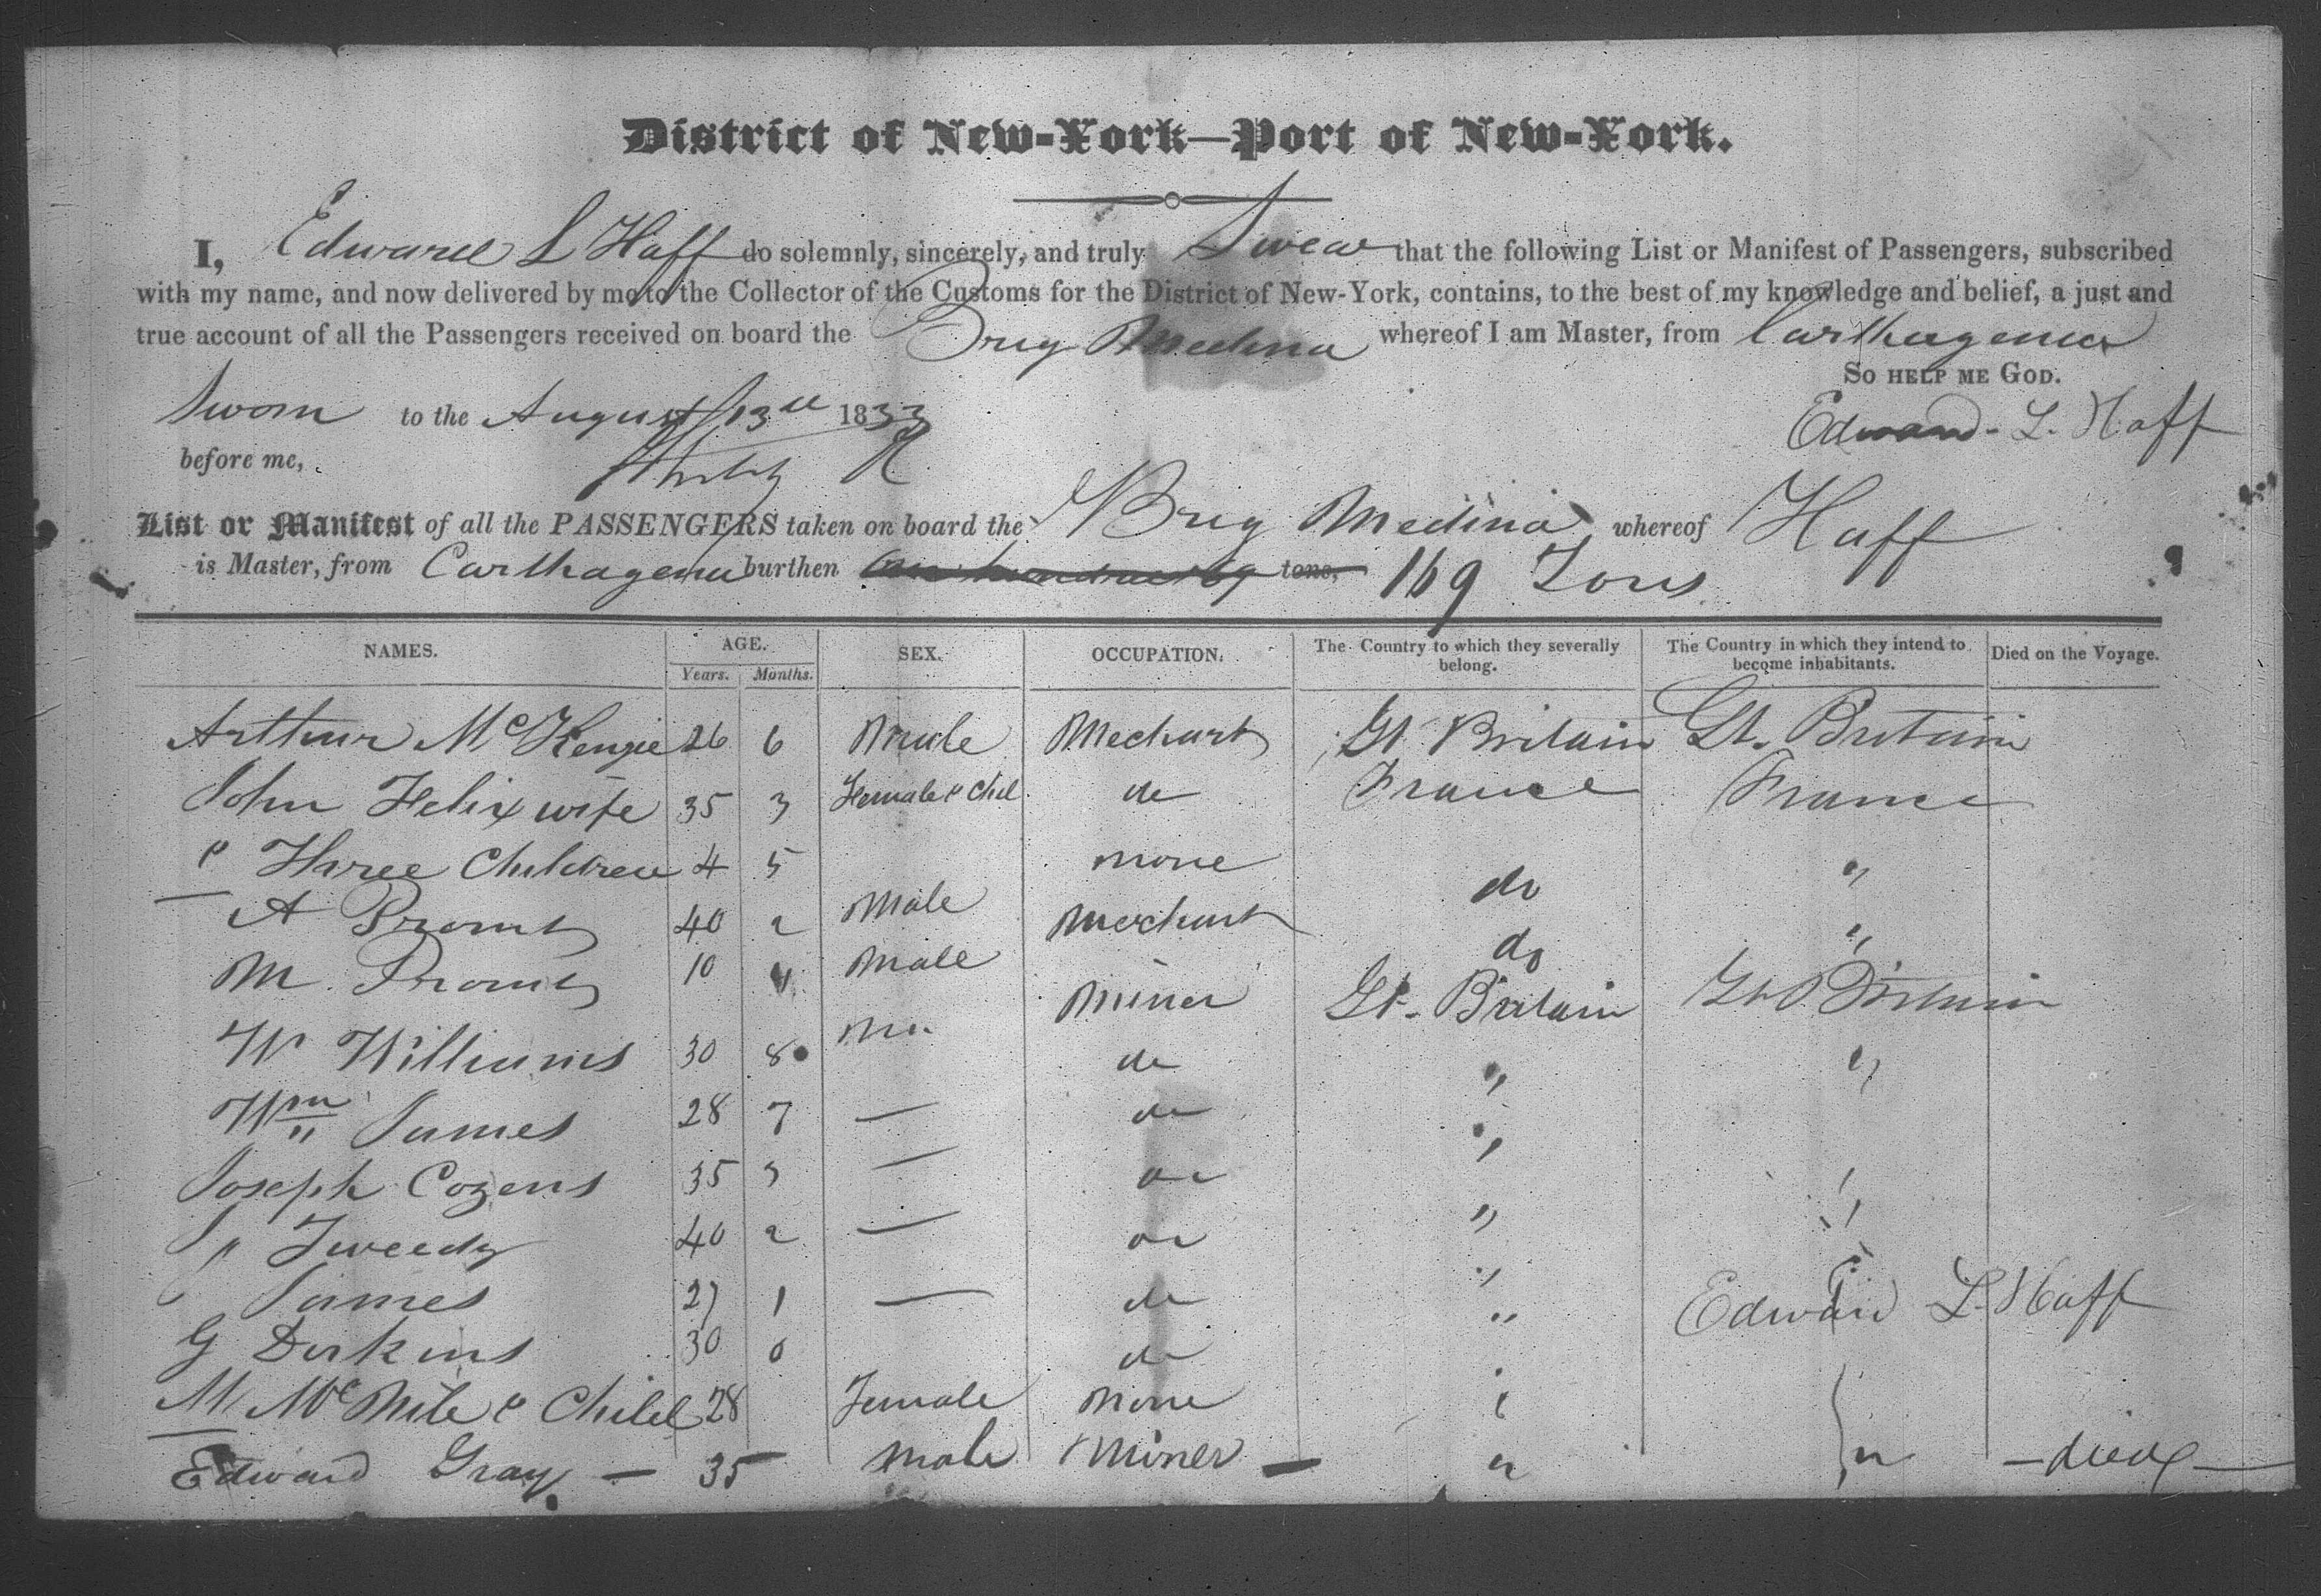 District of New-York—Port of New-York.
I, Edward L Haff do solemnly, sincerely, and truly Swear that the following List or Manifest of Passengers, subscribed
with my name, and now delivered by me to the Collector of the Customs for the District of New-York, contains, to the best of my knowledge and belief, a just and
true account of all the Passengers received on board the Brig Medina whereof I am Master, from Carthagena
So help me God.
Sworn to the August 13th 1833 Edward L. Haff
before me,
List or Manifest of all the PASSENGERS taken on board the Brig Medina whereof Haff
is Master, from Carthagena burthen tons, 169 Tons
NAMES. AGE. SEX. OCCUPATION. The Country to which they severally belong. The Country in which they intend to become inhabitants. Died on the Voyage.
Years. Months.
Arthur McKenzie 26 6 Male Mechant Gt Britain Gt. Britain
John Felix wife 35 3 Female & Chil do France France
& Three Children 4 5 none do "
A Promt 40 2 Male Merchant do "
M. Promt 10 4 Male
W Williams 30 8 Ma. Miner Gt. Britain Gt Britain
Wm James 28 7 — do " "
Joseph Cozens 35 3 — do "
J Tweedy 40 2 — do " "
James 27 1 — do "
G Dirkins 30 0 do " Edward L. Haff
M McNile & Child 28 Female None "
Edward Gray — 35 Male Miner — " " — died —